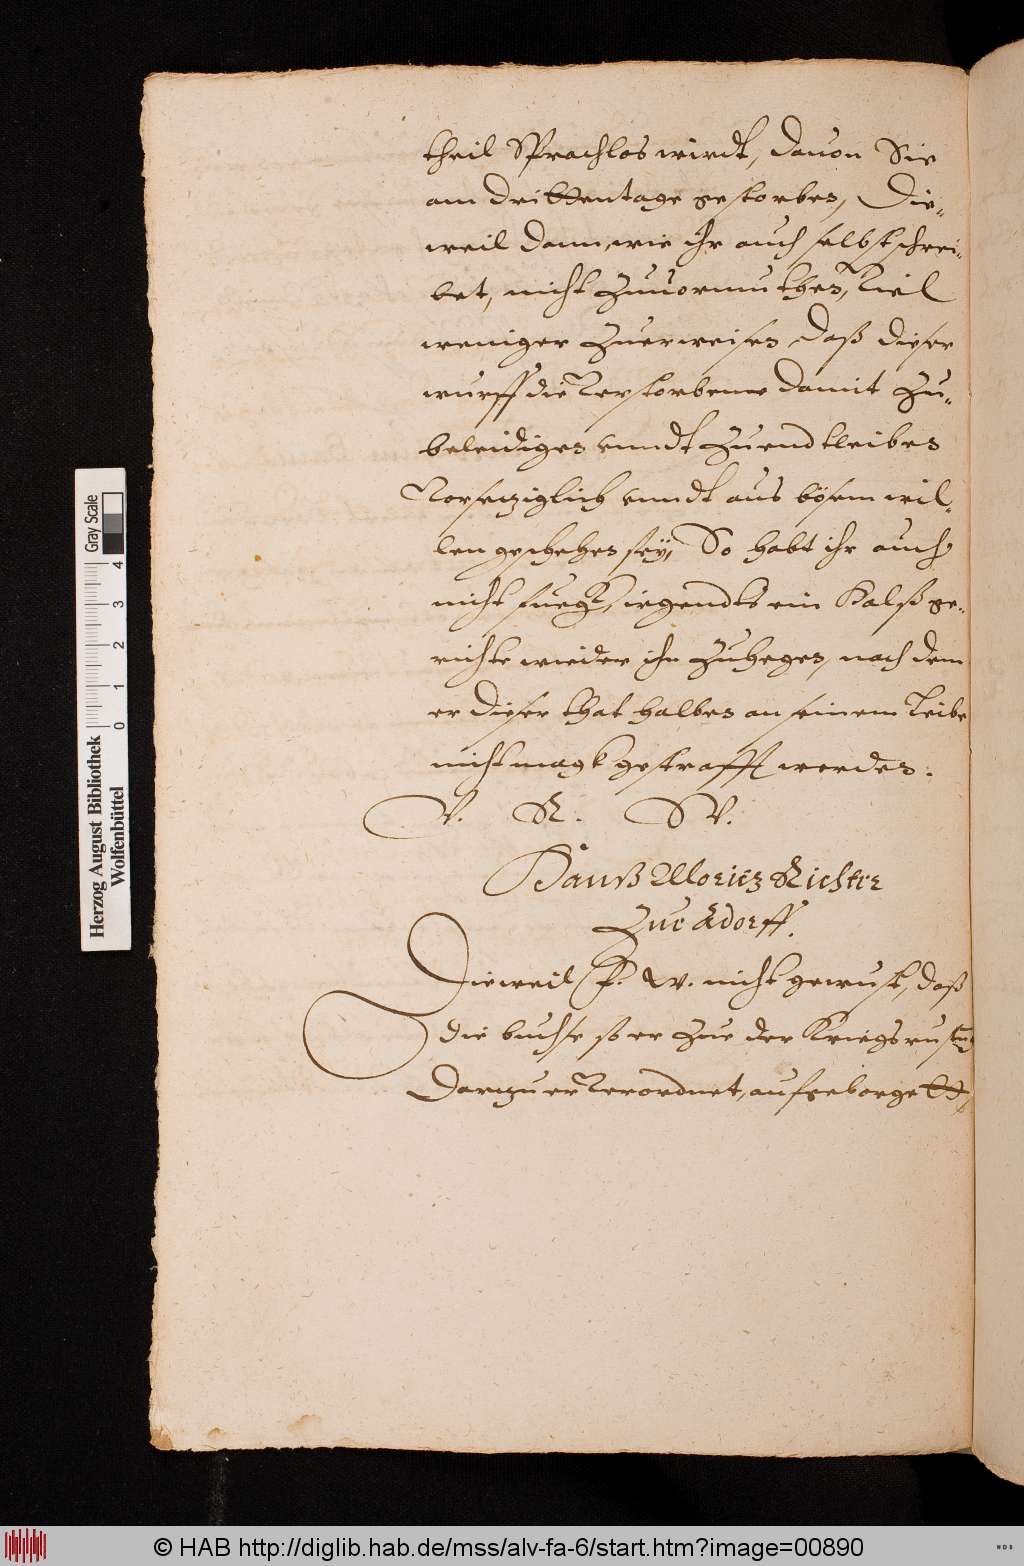 theil Sprachlos wirdt, dauon Sie
am drittentage gestorben, Die-
weil dann, wie ihr auch selbst schrei-
bet, nicht Zuuormuthen, Viel
weniger Zuerweisen daß dieser
wurff die Verstorbene damit Zu-
beleidigen vnndt Zuendtleiben
Vorsezziglich vnndt aus bösem wil-
len geschehen sey, So habt ihr auch
nicht fueg, irgendts ein Halßge-
richte wieder ihn Zuhegen, nach dem
er dieser that halben an seinem Leibe
nicht magk gestrafft werden.
V. R. W.
Hanß Moritz Richter
Zue Adorff.
Dieweil nicht gewust, daß
die buchse so er Zue der Kriegsrustung
Darzu er Verordnet, aufgeborgett,
Gray Scale
0 1 2 3 4
Herzog August Bibliothek
Wolfenbüttel
© HAB http://diglib.hab.de/mss/alv-fa-6/start.htm?image=00890